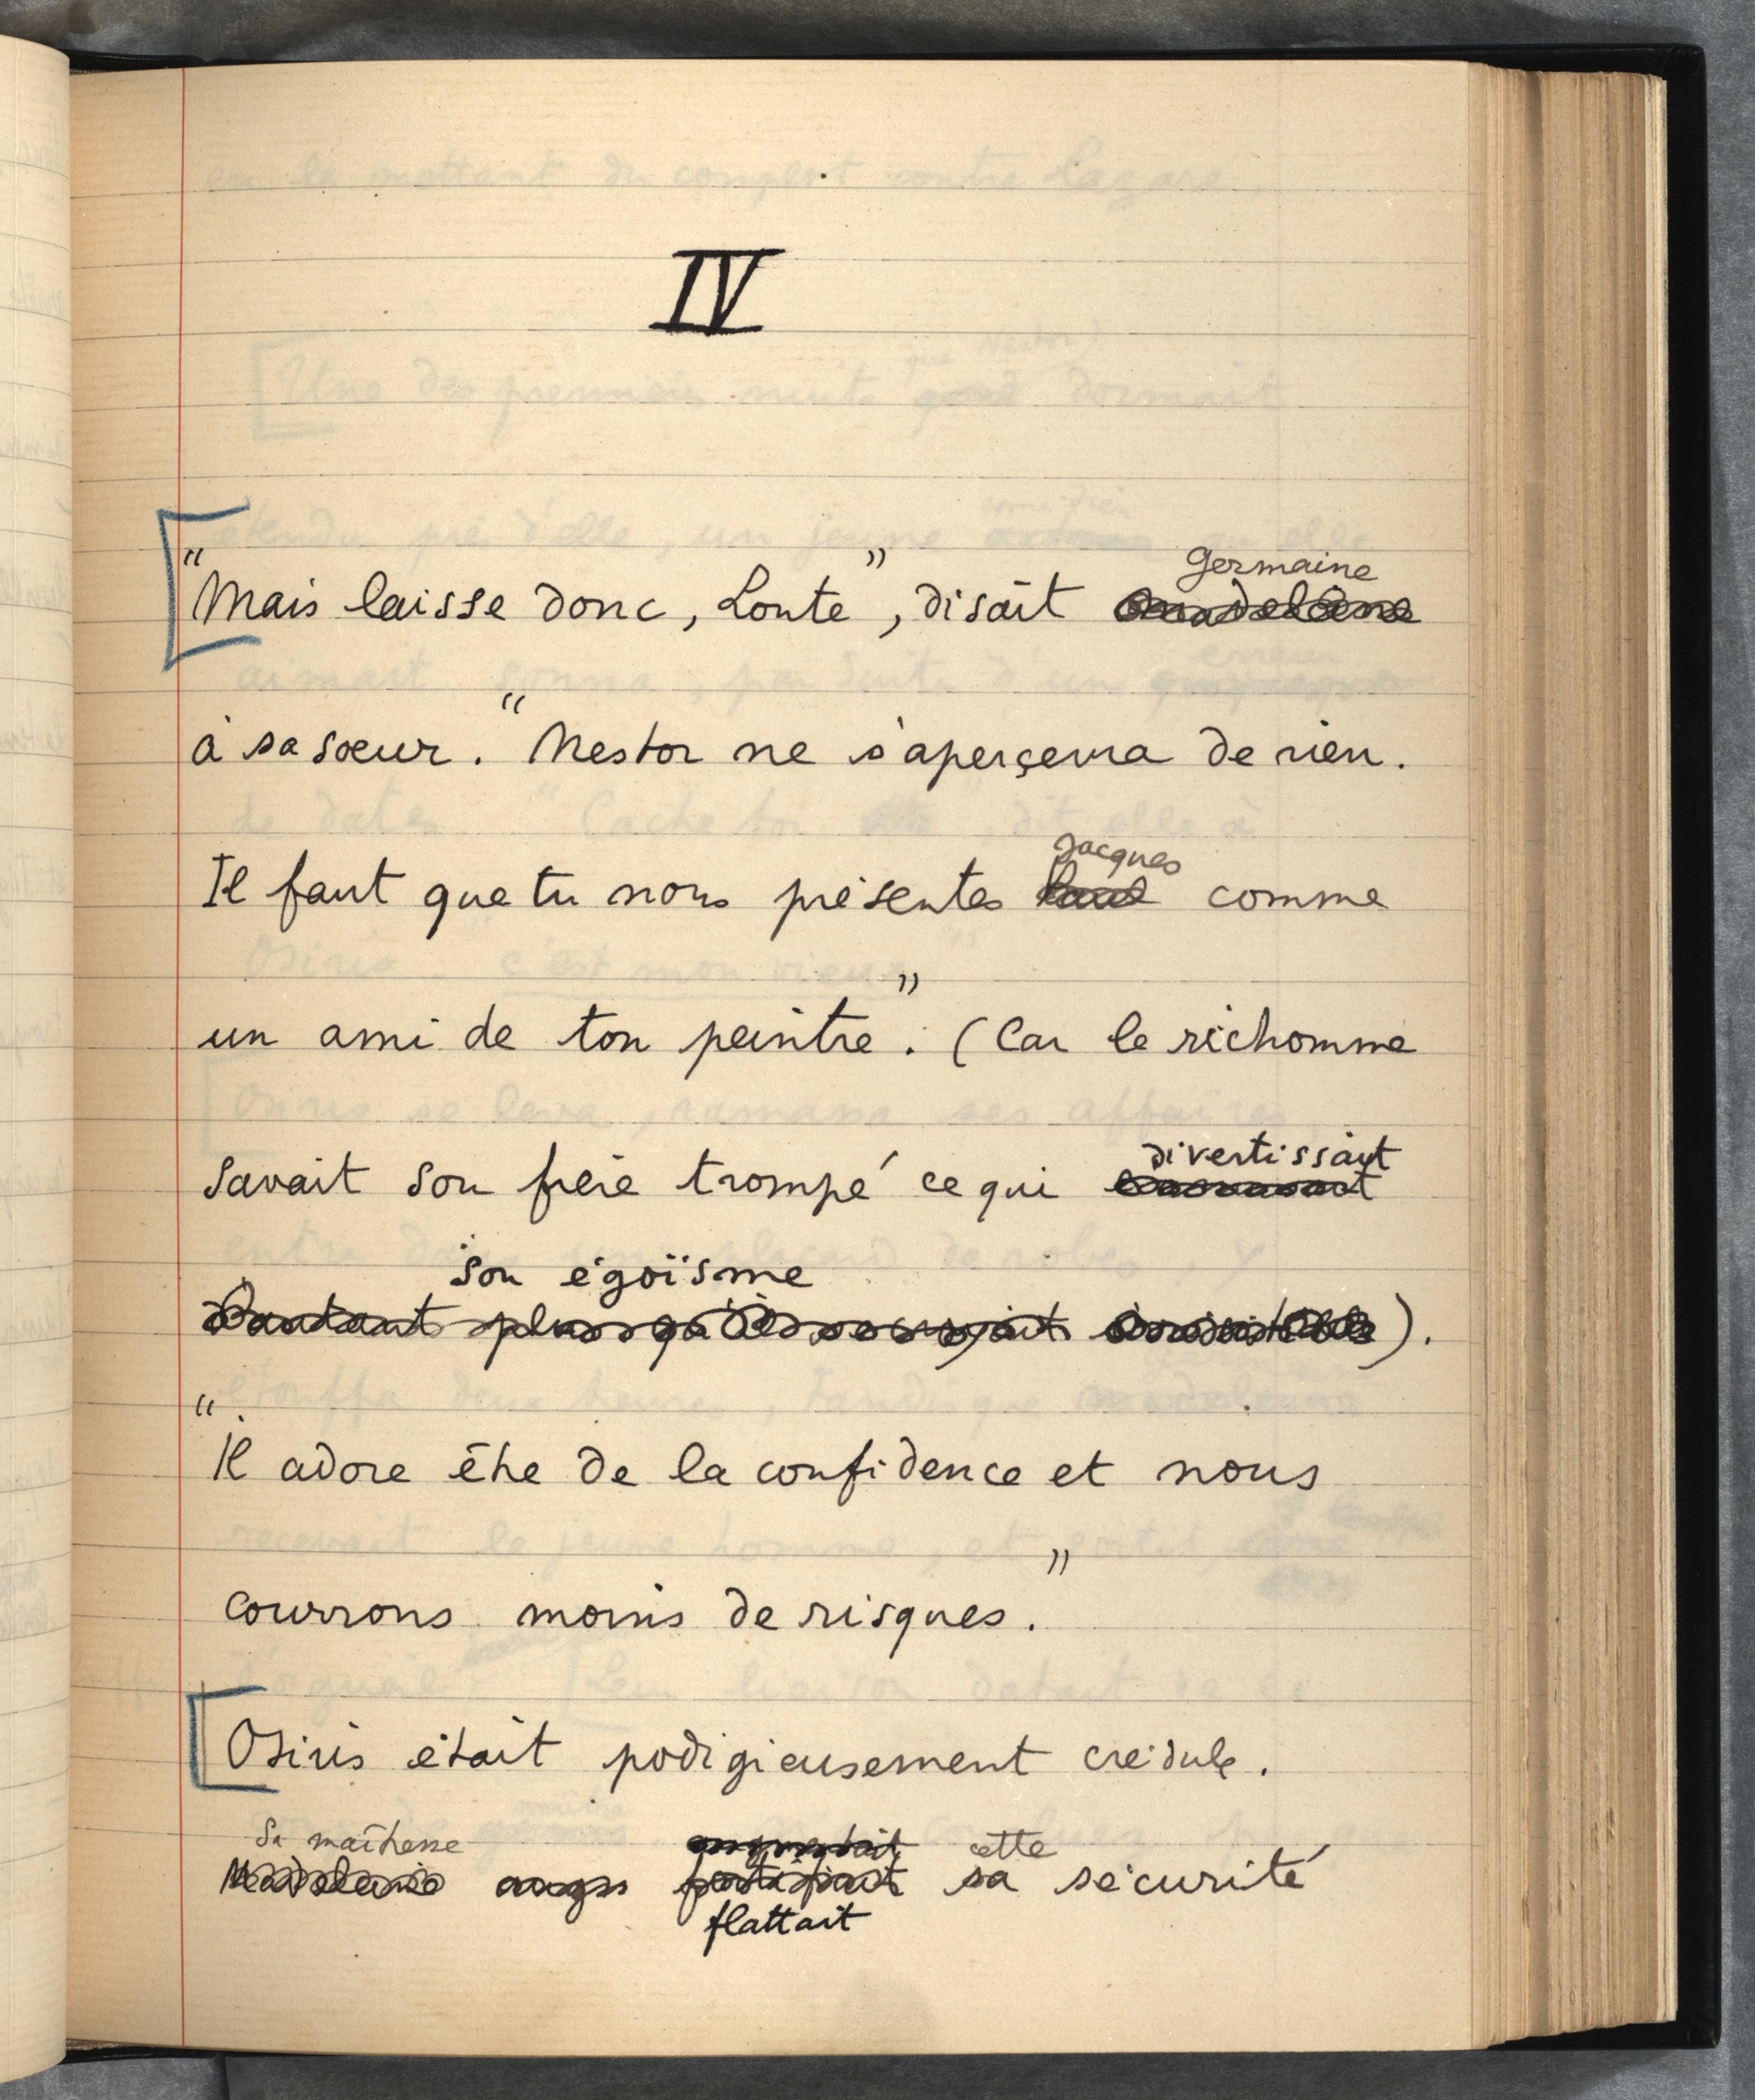 IV
Germaine
"Mais laisse donc, Loute", disait Madeleine
à sa soeur. "Nestor ne s'aperçevra de rien.
Jacques
Il faut que tu nous présentes comme
un ami de ton peintre". (Car le richomme
divertissait
savait son frère trompé ce qui
son égoïsme
d'autant plus qu'il se croyait ).
"Il adore être de la confidence et nous
courrons moins de risques."
Osiris était podigieusement crédule.
Sa maîtresse augmentait cette
Madeleine fortifiait sa sécurité
flattait